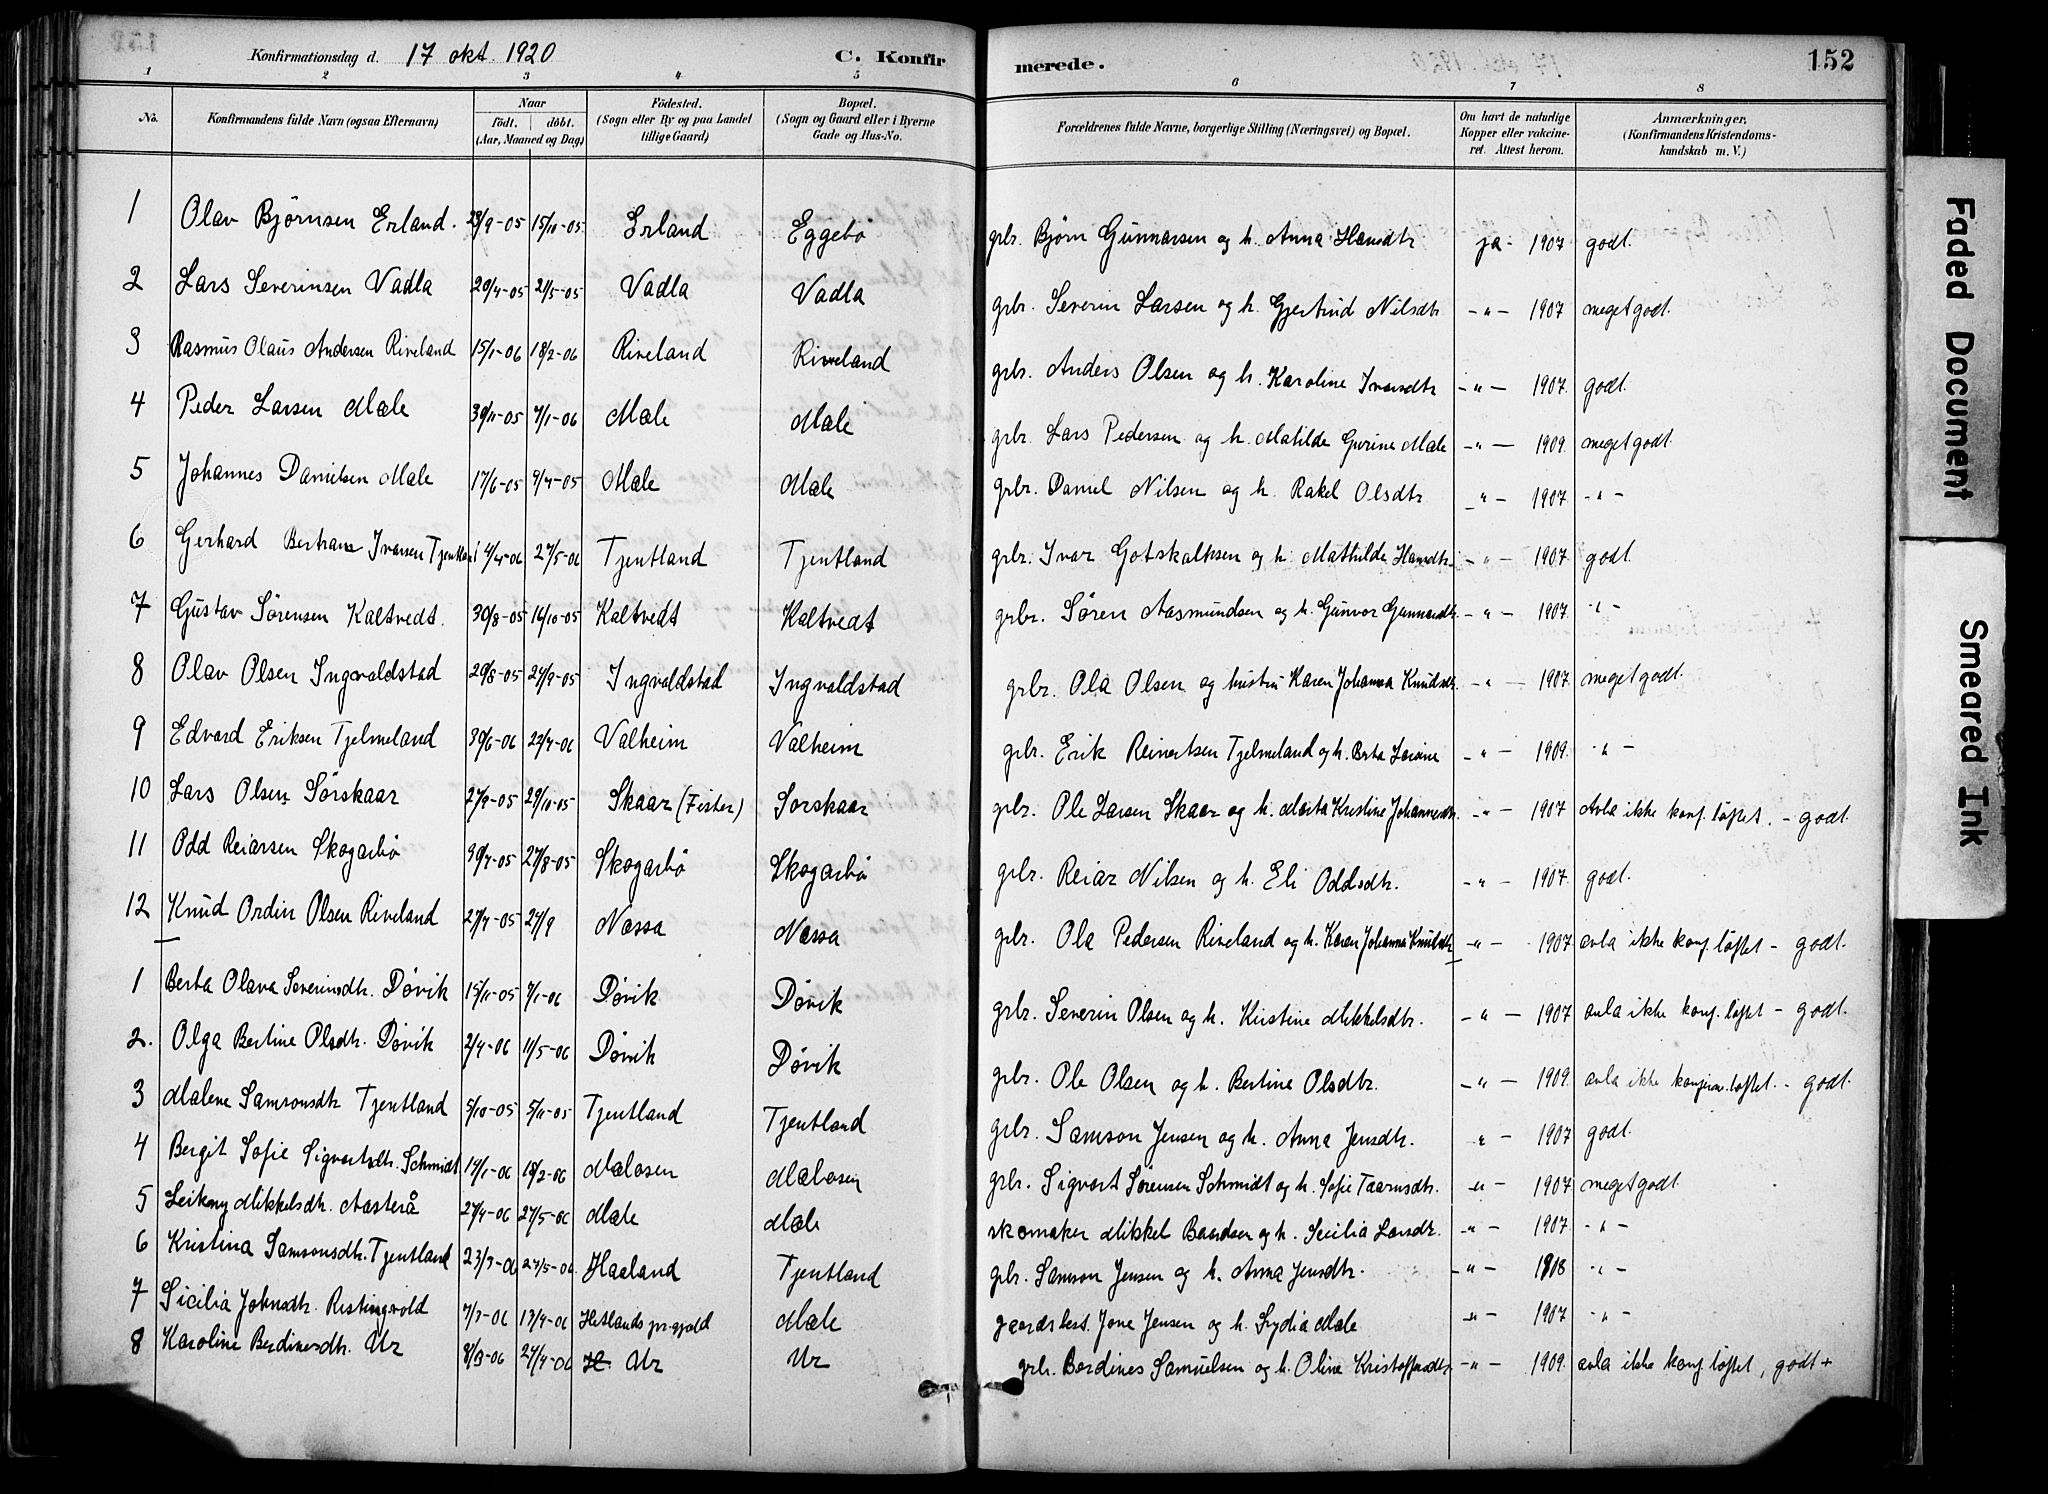 Konfirmationsdag d. 17 okt. 1920 C. Konfirmerede. 152
1 2 3 4 5 6 7 8
No. Konfirmandens fulde Navn (ogsaa Efternavn) Naar Födt. döbt. (Aar, Maaned og Dag) Födested. (Sogn eller By og paa Landet tillige Gaard) Bopæl. (Sogn og Gaard eller i Byerne Gade og Hus-No. Forældrenes fulde Navne, borgerlige Stilling (Næringsvei) og Bopæl. Om havt de naturlige Kopper eller vakcineret. Attest herom. Anmærkninger, (Konfirmandens Kristendomskundskab m. V.)
1 Olav Bjørnsen Erland. 23/9-05 15/10-05 Erland Eggebø grbr. Bjørn Gunnarsen og h. Anna Hansdtr ja - 1907 godt.
2 Lars Severinsen Vadla 20/4-05 21/5-05 Vadla Vadla grbr. Severin Larsen og h. Gjertrud Nilsdtr -"- 1907 meget godt.
3 Rasmus Olaus Andersen Riveland 15/1-06 18/2-06 Riveland Riveland grbr. Anders Olsen og h. Karoline Ivarsdtr -"- 1907. godt.
4 Peder Larsen Mæle 30/11-05 7/1-06 Mæle Mæle grbr. Lars Pedersen og h. Matilde Gurine Mæle -"- 1909. meget godt.
5 Johannes Danielsen Mæle 17/6-05 9/7-05 Mæle Mæle grbr. Daniel Nilsen og h. Rakel Olsdtr -"- 1907 -"-
6 Gerhard Bertran Ivarsen Tjentland 4/4-06 27/5-06 Tjentland Tjentland grbr. Ivar Gotskalksen og h. Mathilde Hansdtr. -"- 1907 godt.
7 Gustav Sørensen Kaltvedt. 30/8-05 16/10-05 Kaltvedt Kaltvedt grbr. Søren Aasmundsen og h. Gunvor Gunnarsdtr. -"- 1907. -"-
8 Olav Olsen Ingvaldstad 29/8-05 24/9-05 Ingvaldstad Ingvaldstad grbr. Ola Olsen og hustru Karen Johanna Knudsdtr. -"- 1907 meget godt.
9 Edvard Eriksen Tjelmeland 30/6-06 22/7-06 Valheim Valheim grbr. Erik Reinertsen Tjelmeland og h. Berta Lovine -"- 1909. -"-
10 Lars Olsen Sørskaar 27/9-05 29/10-05 Skaar (Fister) Sorskaar grbr. Ole Larsen Skaar og h. Marta Kristine Johannesdtr. -"- 1907 Avla ikke konf. løftet. - godt.
11 Odd Reiarsen Skogarbø 30/7-05 27/8-05 Skogarbø Skogarbø grbr. Reiar Nilsen og h. Eli Oddsdtr. -"- 1907. godt.
12 Knud Ordin Olsen Riveland 27/7-05 24/9 Næssa Næssa grbr. Ola Pedersen Riveland og h. Karen Johanna Knudsdtr -"- 1907 avla ikke konf løftet - godt.
1 Berta Olava Severinsdtr. Døvik 15/11-05 7/1-06 Døvik Døvik grbr. Severin Olsen og h. Kristine Mikkelsdtr. -"- 1907 avla ikke konf. løftet - godt.
2. Olga Bertine Olsdtr. Døvik 2/4-06 11/5-06 Døvik Døvik grbr. Ole Olsen og h. Bertine Olsdtr. -"- 1909. avla ikke konfirm. løftet. - godt.
3 Malene Samsonsdtr Tjentland 5/10-05 5/11-05 Tjentland Tjentland grbr. Samson Jensen og h. Anna Jensdtr. -"- 1907 godt.
4 Bergit Sofie Sigvartsdtr. Schmidt 14/1-06 18/2-06 Mælosen Mælosen grbr. Sigvart Sørensen Schmidt og h. Sofie Taarnsdtr. -"- 1907 meget godt.
5 Leikny Mikkelsdtr. Aasterå 27/4-06 27/5-06 Mæle Mæle skomaker Mikkel Baardsen og h. Secilia Larsdtr. -"- 1907. -"-
6 Kristina Samsonsdtr. Tjentland 23/3-06 27/5-06 Haaland Tjentland grbr. Samson Jensen og h. Anna Jensdtr. -"- 1908 -"-
7 Sicilia Johnsdtr. Ristingvold 7/3-06 13/4-06 Hetlands pr.gjeld Mæle gaardsbest. Jone Jensen og h. Lydia Mæle -"- 1907 -"-
8 Karoline Berdinesdtr. Ur 8/3-06 24/4-06 Ur Ur grbr. Berdines Samuelsen og h. Oline Kristoffersdtr. -"- 1909. avla ikke konf. løftet, godt +
Faded Document
Smeared Ink